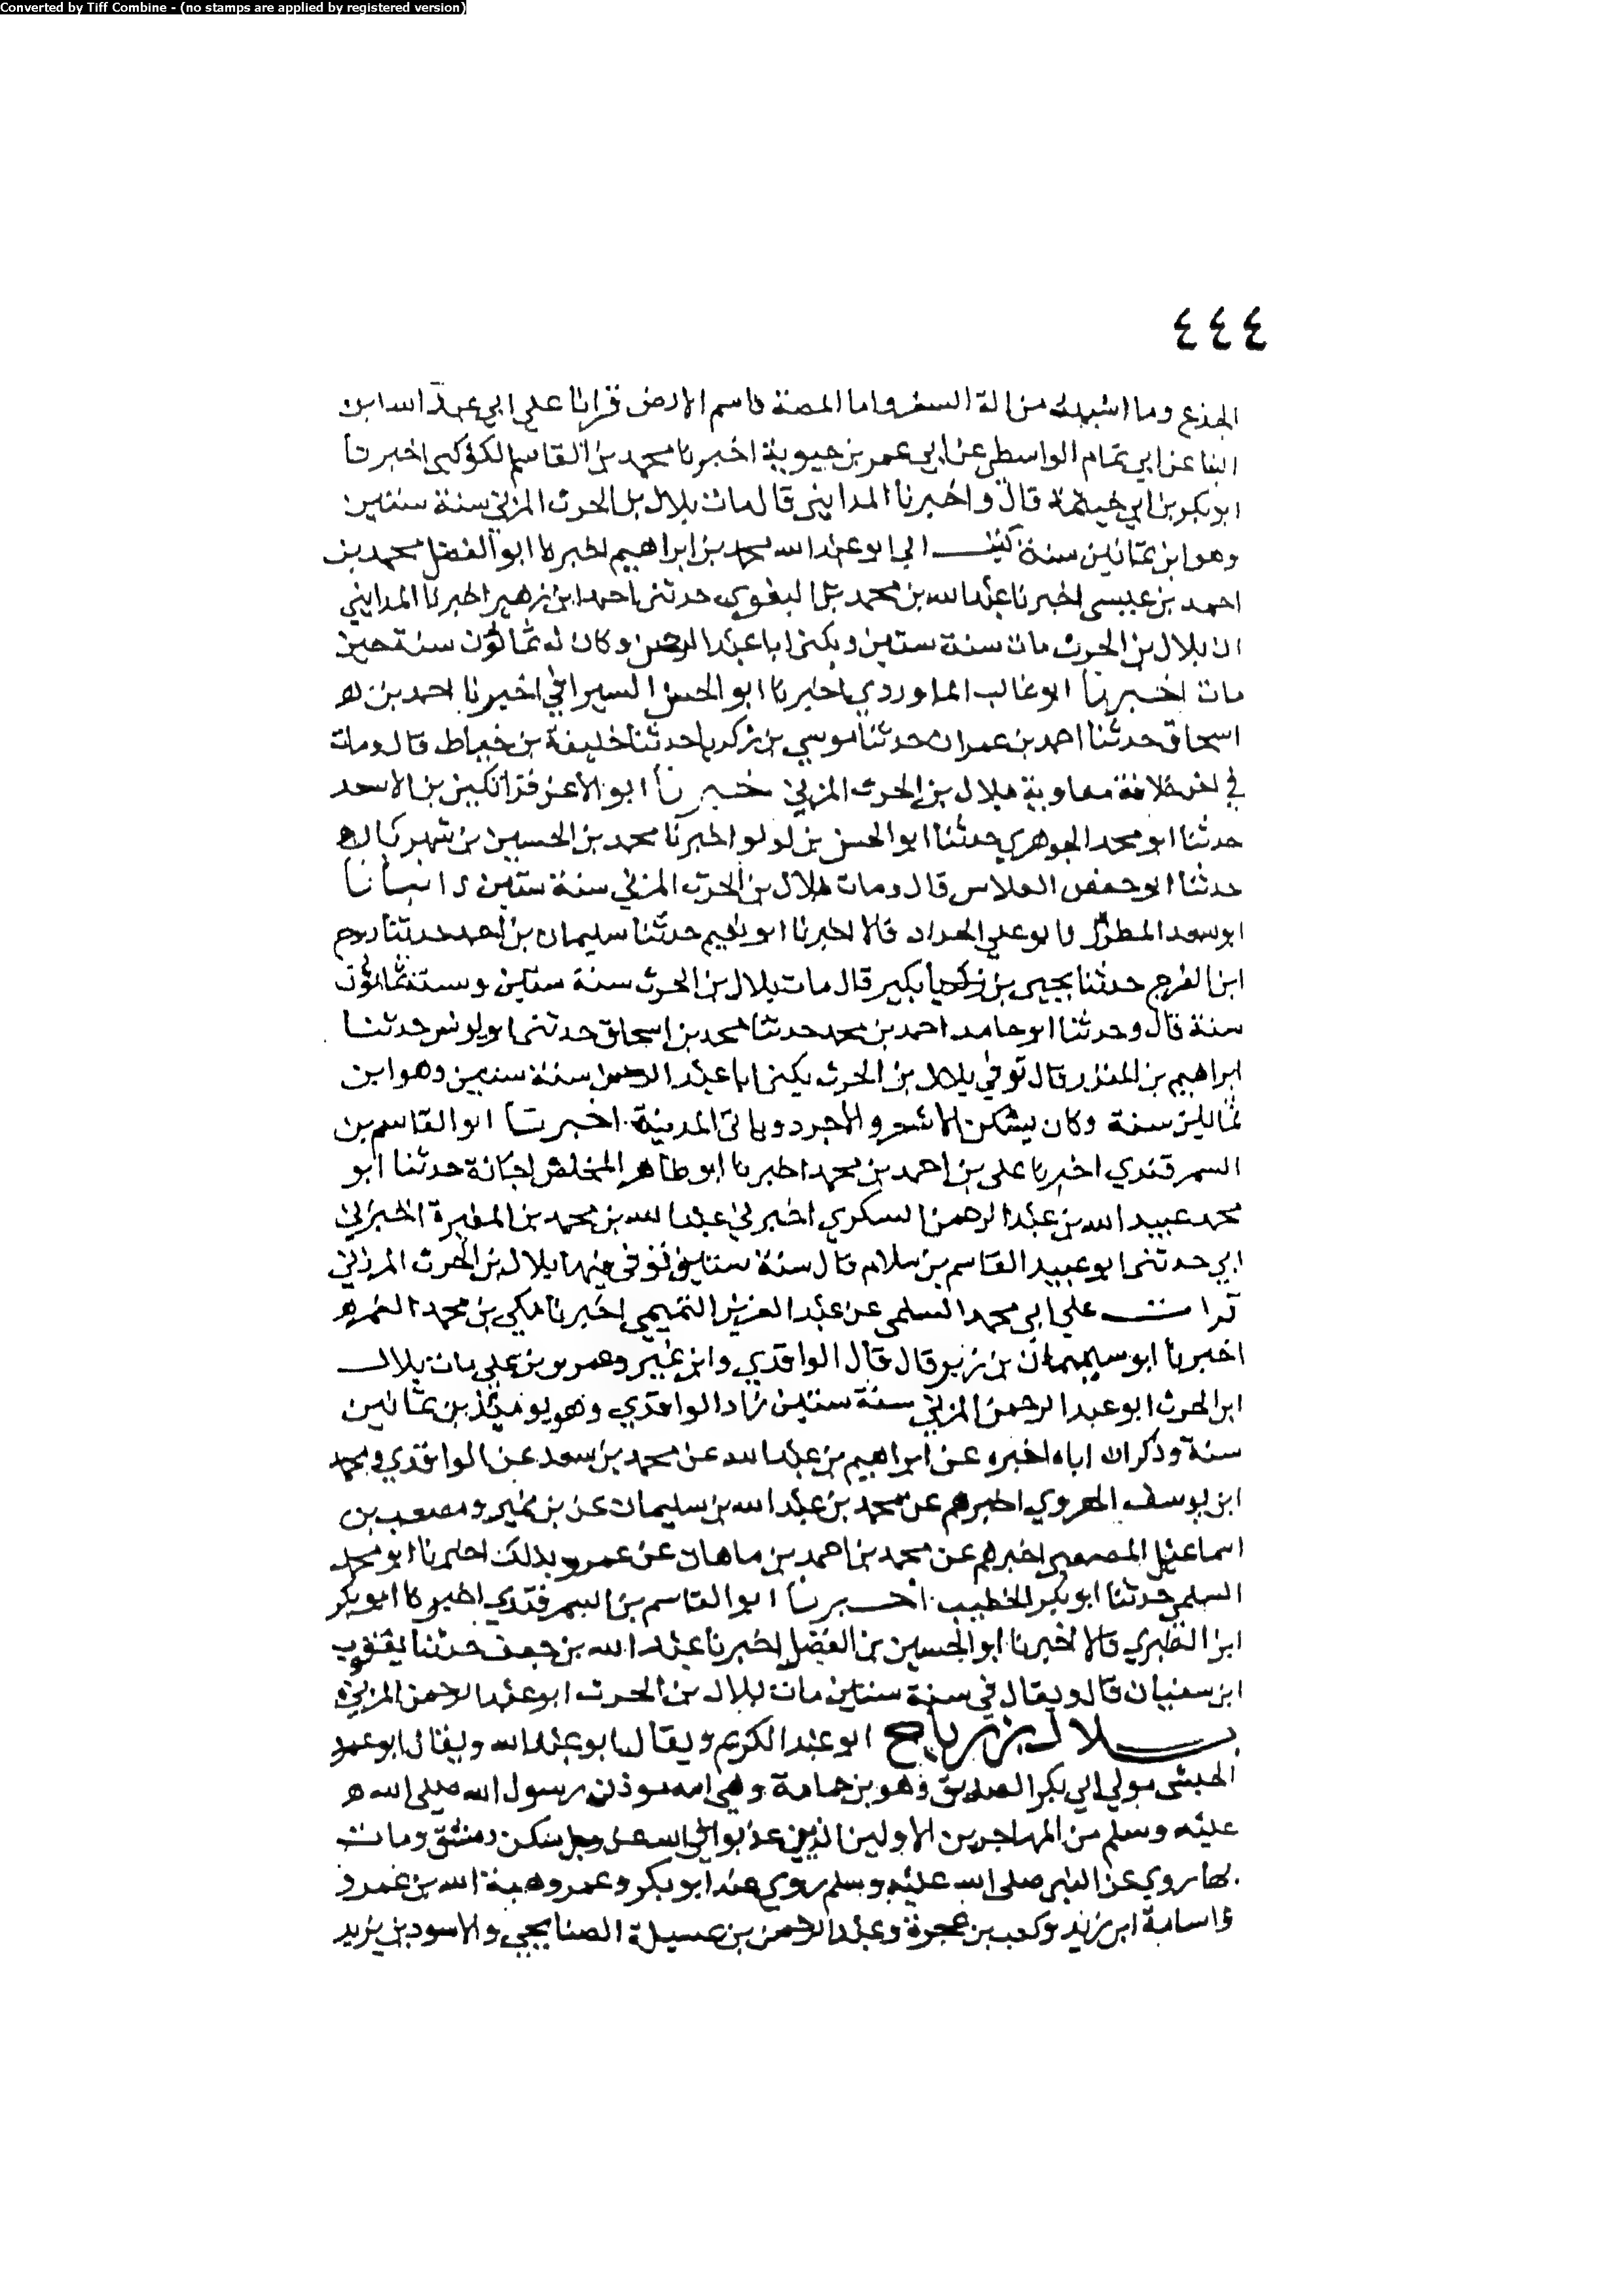 Converted by Tiff Combine - (no stamps are applied by registered version)
٤٤٤
الجذع وما اشبهه من الة السفر واما المصة فاسم الارض قرانا على ابي عبد الله ابن
البنا عن ابي تمام الواسطي عن ابي عمر بن حيوية اخبرنا محمد بن القاسم الكوكبى اخبرنا
ابو بكر بن ابي خيثمة قال واخبرنا المدايني قال مات بلال بن الحرث المزني سنة ستين
وهو ابن ثمانين سنة كتب الي ابو عبد الله محمد بن ابراهيم اخبرنا ابو الفضل محمد بن
احمد بن عيسى اخبرنا عبد الله بن محمد البغوي حدثنى احمد ابن زهير اخبرنا المدايني
ان بلال بن الحرث مات سنة ستين ويكنى ابا عبد الرحمن وكان له ثمانون سنة حين
مات اخبرنا ابو غالب الماوردي اخبرنا ابو الحسن السيرافي اخبرنا احمد بن
اسحاق حدثنا احمد بن عمران حدثنا موسي بن زكريا حدثنا خليفة بن خياط قال ومات
في اخر خلافة معاوية بلال بن الحرث المزني خبرنا ابو الاعز قراتكين بن الاسعد
حدثنا ابو محمد الجوهري حدثنا ابو الحسن بن لولو اخبرنا محمد بن الحسين بن شهريار
حدثنا ابو حفص الفلاس قال ومات بلال بن الحرث المزني سنة ستين انبانا
ابو سعد المطرز وابو علي الحداد قالا اخبرنا ابو نعيم حدثنا سليمان بن احمد حدثنا روح
ابن الفرج حدثنا يحيى بن بكير قال مات بلال بن الحرث سنة ستين وسنه ثمانون
سنة قال وحدثنا ابو حامد احمد بن محمد حدثنا محمد بن اسحاق حدثنى ابو يونس حدثنا
ابراهيم بن المنذر قال توفي بلال بن الحرث يكنى ابا عبد الرحمن سنة ستين وهو ابن
ثمانين سنة وكان يسكن الاشعر والاجرد وياتى المدينة اخبرنا ابو القاسم بن
السمرقندي اخبرنا على بن احمد بن محمد اخبرنا ابو طاهر المخلص اجازة حدثنا ابو
محمد عبيد الله بن عبد الرحمن السكري اخبرني عبد الله بن محمد بن المغيرة اخبرني
ابي حدثنى ابو عبيد القاسم بن سلام قال سنة ستين توفي فيها بلال بن الحرث المزني
قرات علي ابي محمد السلمى عن عبد العزيز التميمي اخبرنا مكي بن محمد الغمر
اخبرنا ابو سليمان بن زبر قال قال الواقدي وابن نمير وعمرو بن علي مات بلال
ابن الحرث ابو عبد الرحمن المزني سنة ستين زاد الواقدي وهو يومئذ بن ثمانين
سنة وذكر ان اباه اخبره عن ابراهيم بن عبد الله عن محمد بن سعد عن الواقدي ومحمد
ابن يوسف الهروي اخبرهم عن محمد بن عبد الله بن سليمان عن بن نمير ومصعب بن
اسماعيل المصعبى اخبرهم عن محمد بن احمد بن ماهان عن عمرو بذلك اخبرنا ابو محمد
السلمي حدثنا ابو بكر الخطيب اخبرنا ابو القاسم بن السمرقندي اخبرنا ابو بكر
ابن الطبري قالا اخبرنا ابو الحسين بن الفضل اخبرنا عبد الله بن جعفر حدثنا يعقوب
ابن سفيان قال ويقال في سنة ستين مات بلال بن الحرث ابو عبد الرحمن المزني
بلال بن رباح ابو عبد الكريم ويقال ابو عبد الله ويقال ابو عمر
الحبشي مولي ابي بكر الصديق وهو بن حمامة وهي امه موذن رسول الله صلى الله
عليه وسلم من المهاجرين الاولين الذين عذبوا في الله عز وجل سكن دمشق ومات
بها روي عن النبى صلى الله عليه وسلم روي عنه ابو بكر وعمر وهبة الله بن عمر و
واسامة ابن زيد وكعب بن عجرة وعبد الرحمن بن عسيلة الصنابحي والاسود بن يزيد